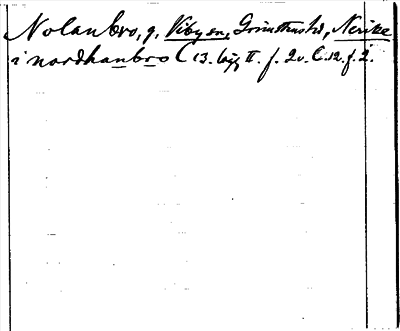 Nolanbro, g, Viby sn, Grimstens hd, Nerike
i nordhanbro C 13. läg II. f. 2 v. C. 12. f. 2.